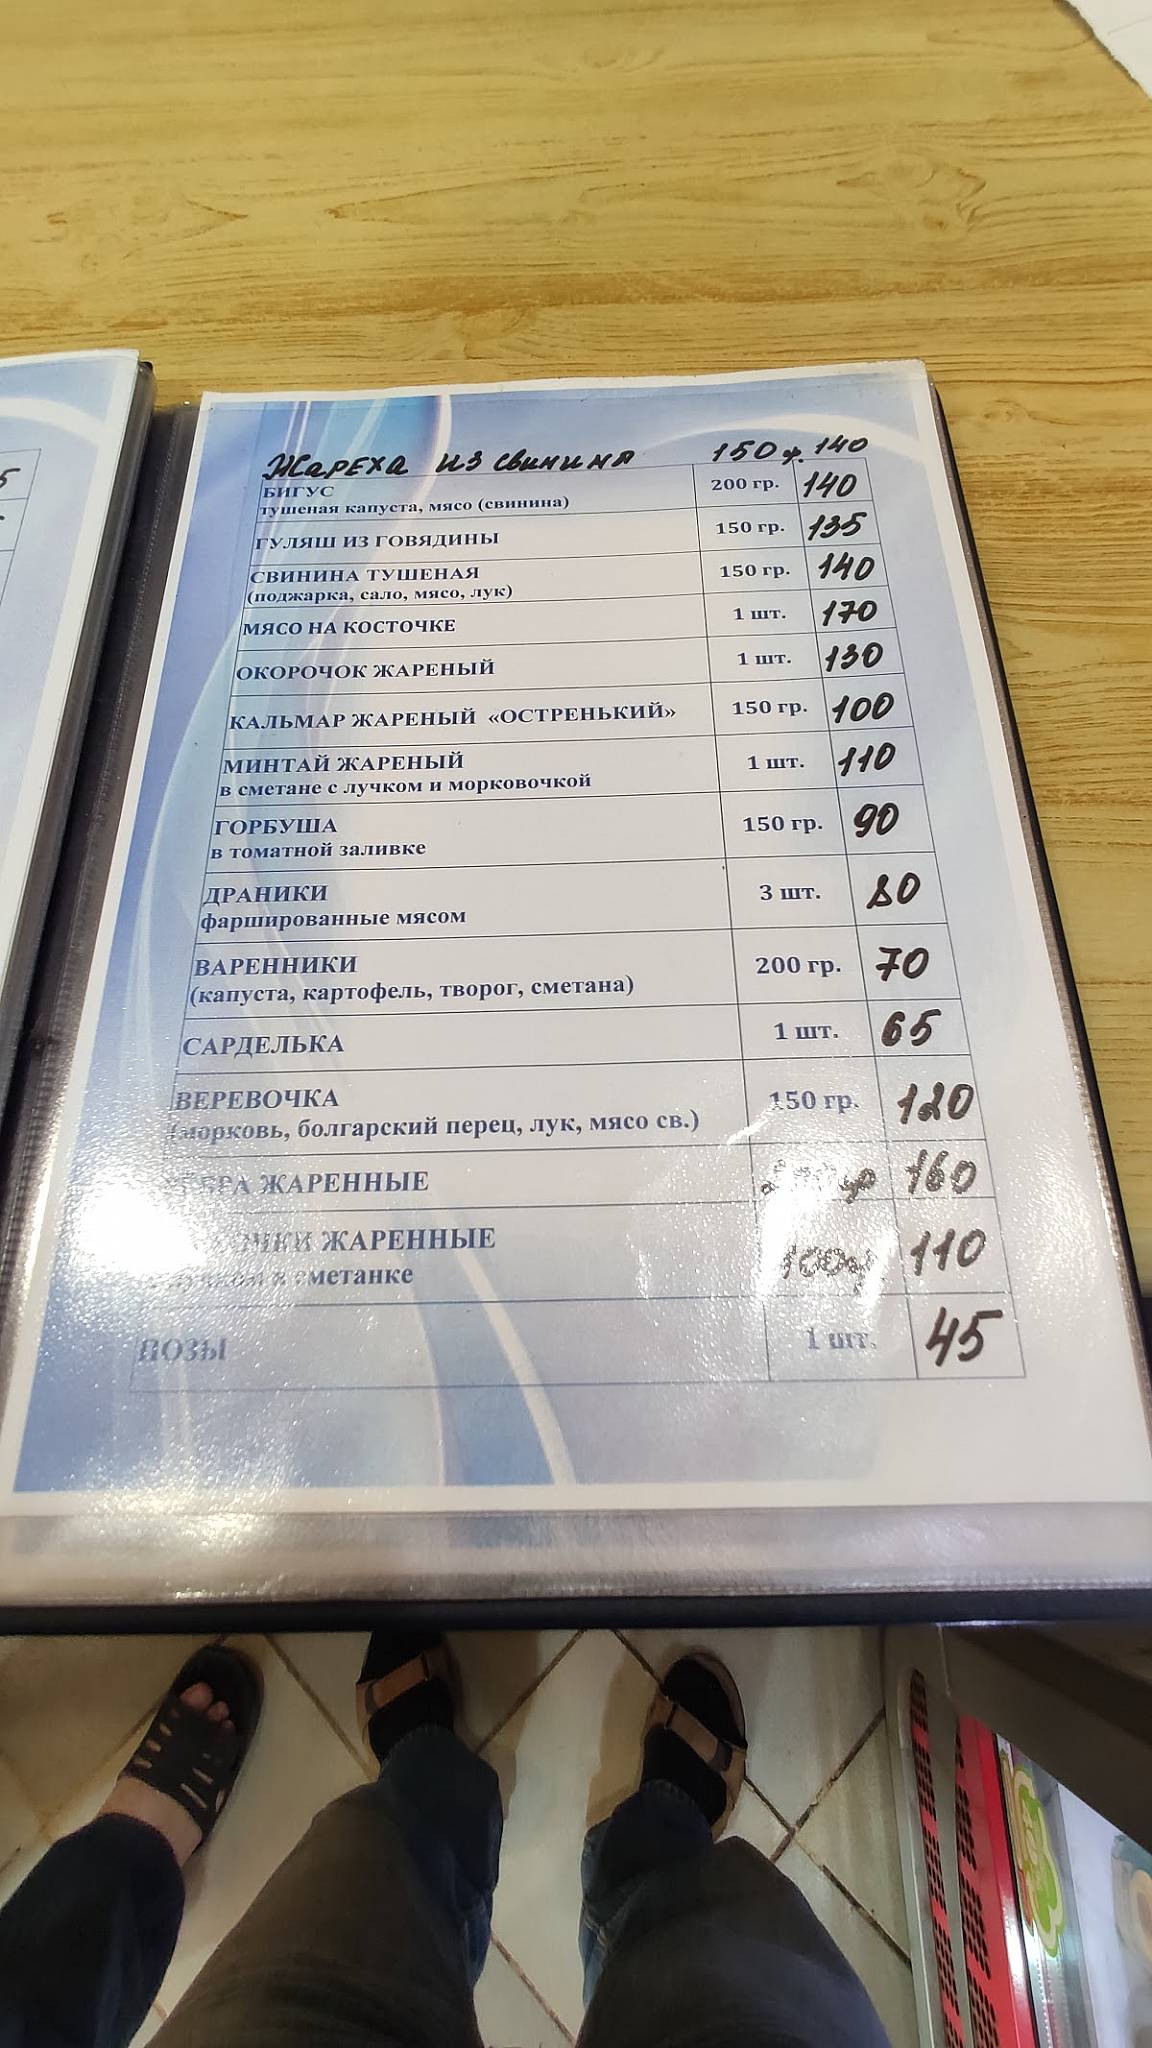 Жареха из свинина 150 г. 140
БИГУС 200 гр. 140
тушеная капуста, мясо (свинина)
ГУЛЯШ ИЗ ГОВЯДИНЫ 150 гр. 135
СВИНИНА ТУШЕНАЯ 150 гр. 140
(поджарка, сало, мясо, лук)
МЯСО НА КОСТОЧКЕ 1 шт. 170
ОКОРОЧОК ЖАРЕНЫЙ 1 шт. 130
КАЛЬМАР ЖАРЕНЫЙ «ОСТРЕНЬКИЙ» 150 гр. 100
МИНТАЙ ЖАРЕНЫЙ 1 шт. 110
в сметане с лучком и морковочкой
ГОРБУША 150 гр. 90
в томатной заливке
ДРАНИКИ 3 шт. 80
фаршированные мясом
ВАРЕННИКИ 200 гр. 70
(капуста, картофель, творог, сметана)
САРДЕЛЬКА 1 шт. 65
ВЕРЕВОЧКА 150 гр. 120
(морковь, болгарский перец, лук, мясо св.)
ЖАРЕННЫЕ 160
ЖАРЕННЫЕ 100г 110
сметанке
ПОЗЫ 1 шт. 45